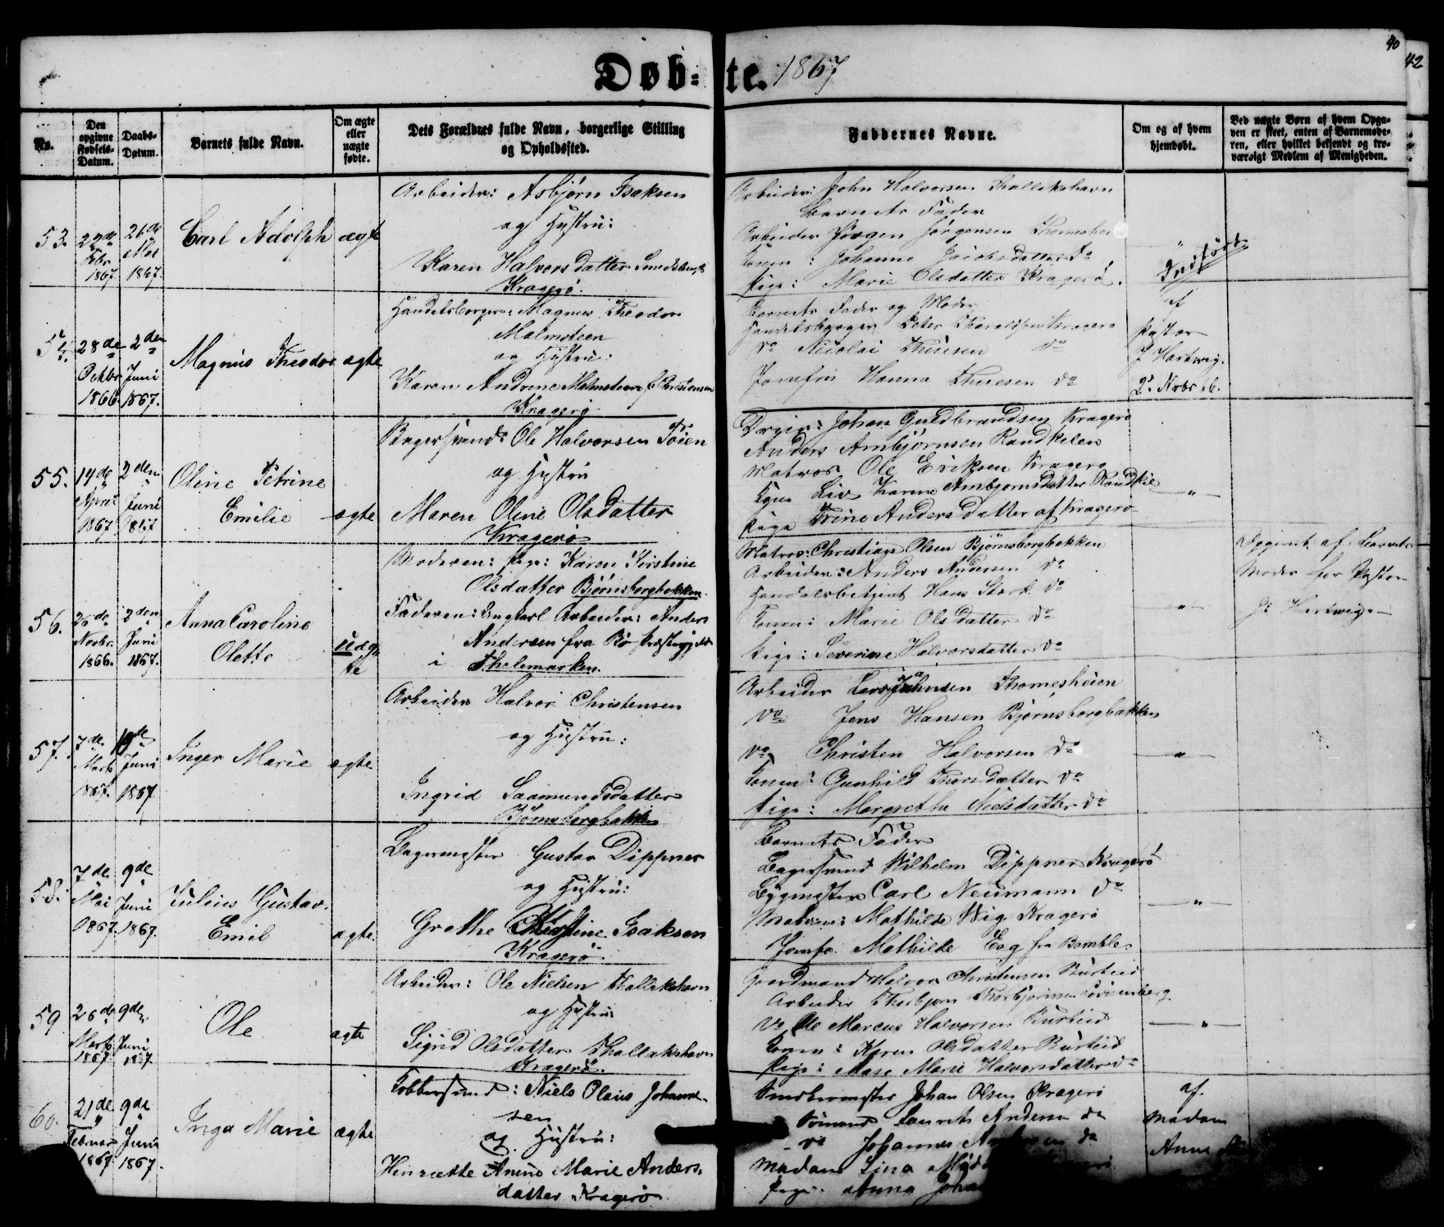 Døb=te. 1867
40
42
No.
Den opgivne Fødsels-Datum.
Daabs-Datum.
Barnets fulde Navn.
Om ægte eller uægte fødte.
Dets Forældres fulde Navn, borgerlige Stilling og Opholdssted.
Faddernes Navne.
Om og af hvem hjemdøbt.
Ved uægte Børn af hvem Opgaven er skeet, enten af Barnemoderen, eller hvilket bekjendt og troværdigt Medlem af Menigheden.
53.
22de Febr 1867.
26de Mai 1867.
Carl Adolph
ægte
Arbeider: Asbjørn Isaksen
og Hustru:
Karen Halvorsdatter
Kragerø.
Arbeider: John Halvorsen Kallekshavn
Barnets Fader
Arbeider Jørgen Jørgensen
Konen: Johanne Jacobsdatter do
Pige: Marie Olsdatter Kragerø.
"
54.
28de Octbr 1866.
2den Juni 1867.
Magnus Theodor
ægte
Handelsborger: Magnus Theodor
Malmsteen
og Hustru:
Karen Andrine Malmsteen f. Christensen
Kragerø
Barnets Fader og Moder
Handelsborger Peter Kragerø
do Nicolai Thuesen do
Jomfru Hanna Thuesen do
Indført
af
Pastor
J. Hartwig.
2. Novbr 66.
55.
14de April 1867
2den Juni 1867
Oline Petrine
Emilie
ægte
Bagersvend: Ole Halvorsen Toien
og Hustru
Maren Oline Olsdatter
Kragerø
Johan Guldbrandsen Kragerø
Anders Arnbjørnsen
Matros Ole Eriksen Kragerø
Karine Arnbjørnsdatter
Pige Trine Andersdatter af Kragerø
"
56.
26de Novbr 1866.
2den Juni 1867.
Anna Caroline
Olette
uægte
Moderen: Pige: Karen Kirstine
Olsdatter Bjørnsborgbakken
Faderen: Ungkarl Arbeider: Anders
Andersen fra Bø Præstegjeld
i Thelemarken.
Matros: Christian Olsen Bjørnsborgbakken
Arbeider: Anders Andersen do
Handelsbetjent Hans Stark do
Konen: Marie Olsdatter do
Pige: Severine Halvorsdatter do
"
Opgivet af Barnets
Moder for Pastor
J. Hartwig.
57.
7de Marts 1867.
9de Juni 1867
Inger Marie
ægte
Arbeider Halvor Christensen
og Hustru:
Ingrid Saamundsdatter
Bjørnsborgbakken
Arbeider Lars Johnsen Thomesheien
do Jens Hansen Bjørnsborgbakken
do Christen Halvorsen do
Konen: Gunhild Thorsdatter do
Pige: Margretha Nielsdatter do
"
58.
7de Mai 1867.
9de Juni 1867.
Julius Gustav
Emil
ægte
Bagermester Gustav Dippner
og Hustru:
Grethe Christine Isaksen
Kragerø.
Barnets Fader
Bagersvend Wilhelm Dippner Kragerø
Bygmester Carl Neumann do
Madam: Mathilde Wiig Kragerø
Jomfr. Mathilde Eeg fra Bamble
"
59
26de Marts 1867.
9de Juni 1867.
Ole
ægte
Arbeider: Ole Nielsen Kallekshavn
og Hustru
Sigrid Olsdatter Kallekshavn
Kragerø.
Gaardmand Halvor Christensen Burteid
Arbeider Thorbjørn
do Ole Marcus Halvorsen Burteid
Konen: Karen Olsdatter Burteid
Pige: Marie Halvorsdatter do
"
60.
21de Februar 1867
9de Juni 1867.
Inga Marie
ægte
Kobbersmed: Niels Olaus Johann-
sen
og Hustru:
Henriette Marie Anders-
datter Kragerø
Johan Olsen Kragerø
Laurits Andersen do
do Johannes do
Madam Lina
Pige Anna Joha
af
Madam
Anne